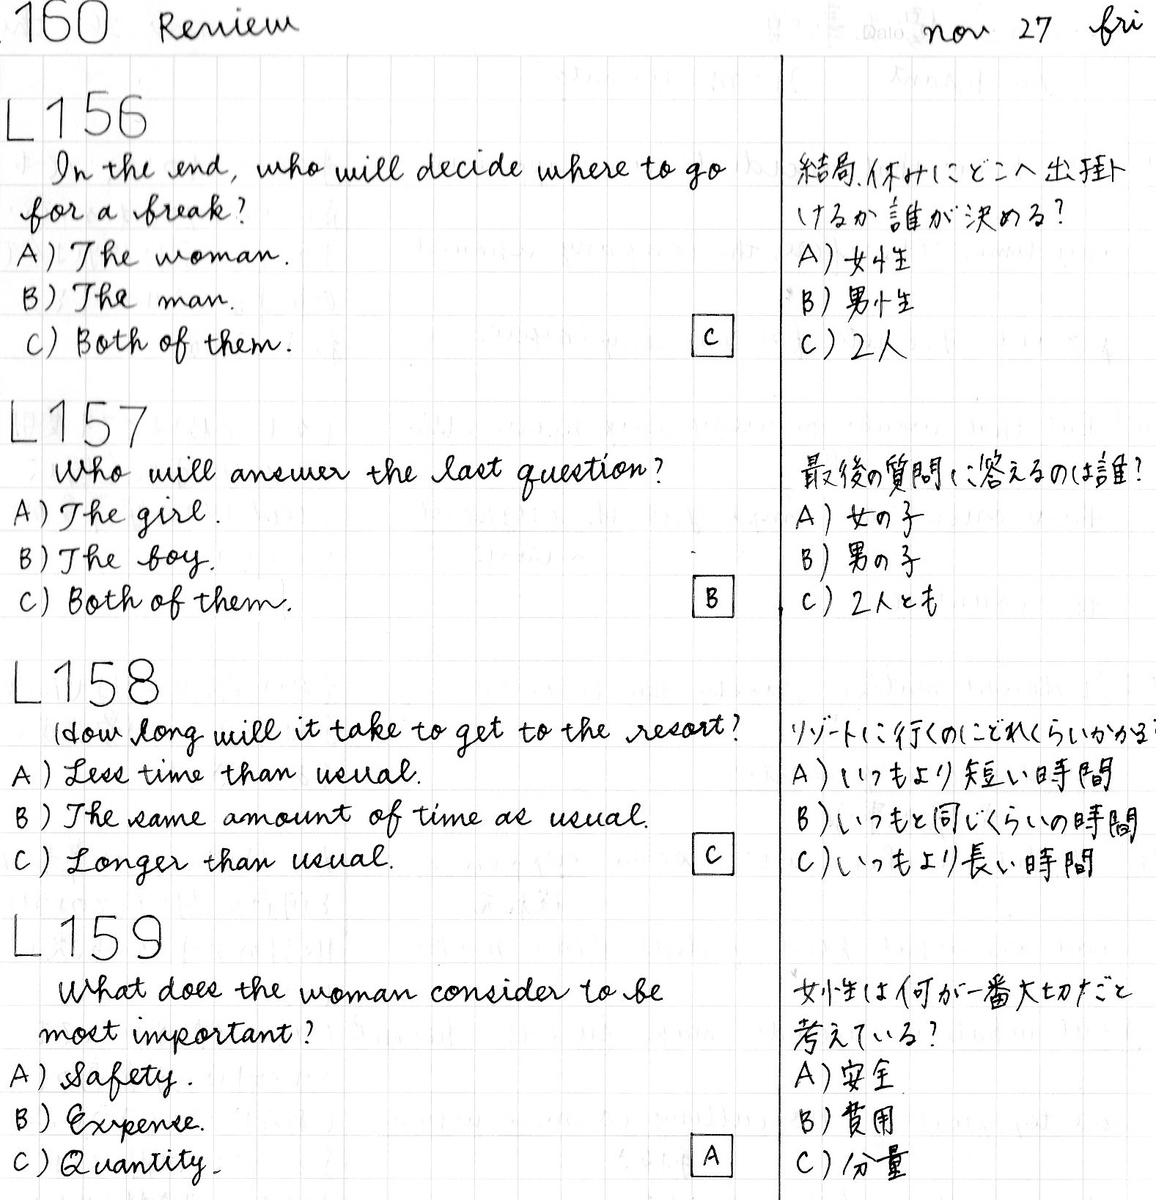 160 Review
nov 27 fri
L156
In the end, who will decide where to go
for a break?
A) The woman.
B) The man.
C) Both of them.
C
結局、休みにどこへ出掛
けるか誰が決める?
A) 女性
B) 男性
C) 2人
L157
Who will answer the last question?
A) The girl.
B) The boy.
C) Both of them.
B
最後の質問に答えるのは誰?
A) 女の子
B) 男の子
C) 2人とも
L158
How long will it take to get to the resort?
A) Less time than usual.
B) The same amount of time as usual.
C) Longer than usual.
C
リゾートに行くのにどれくらいかかる?
A) いつもより短い時間
B) いつもと同じくらいの時間
C) いつもより長い時間
L159
What does the woman consider to be
most important?
A) Safety.
B) Expense.
C) Quantity.
A
女性は何が一番大切だと
考えている?
A) 安全
B) 費用
C) 分量